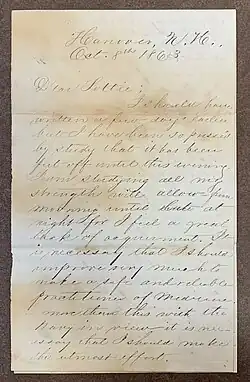 Hanover, N.H.,
Oct. 8th 1863.
Dear Lottie;
I should have
written a few days earlier
but I have been so pressed
by study that it has been
put off until this evening.
I am studying all my
strength will allow from
morning until late at
night for I feel a great
lack of acquirement. It
is necessary that I should
improve very much to
make a safe and reliable
practitioner of Medicine
more than this with the
Navy in view it is nec-
essary that I should make
the utmost effort.